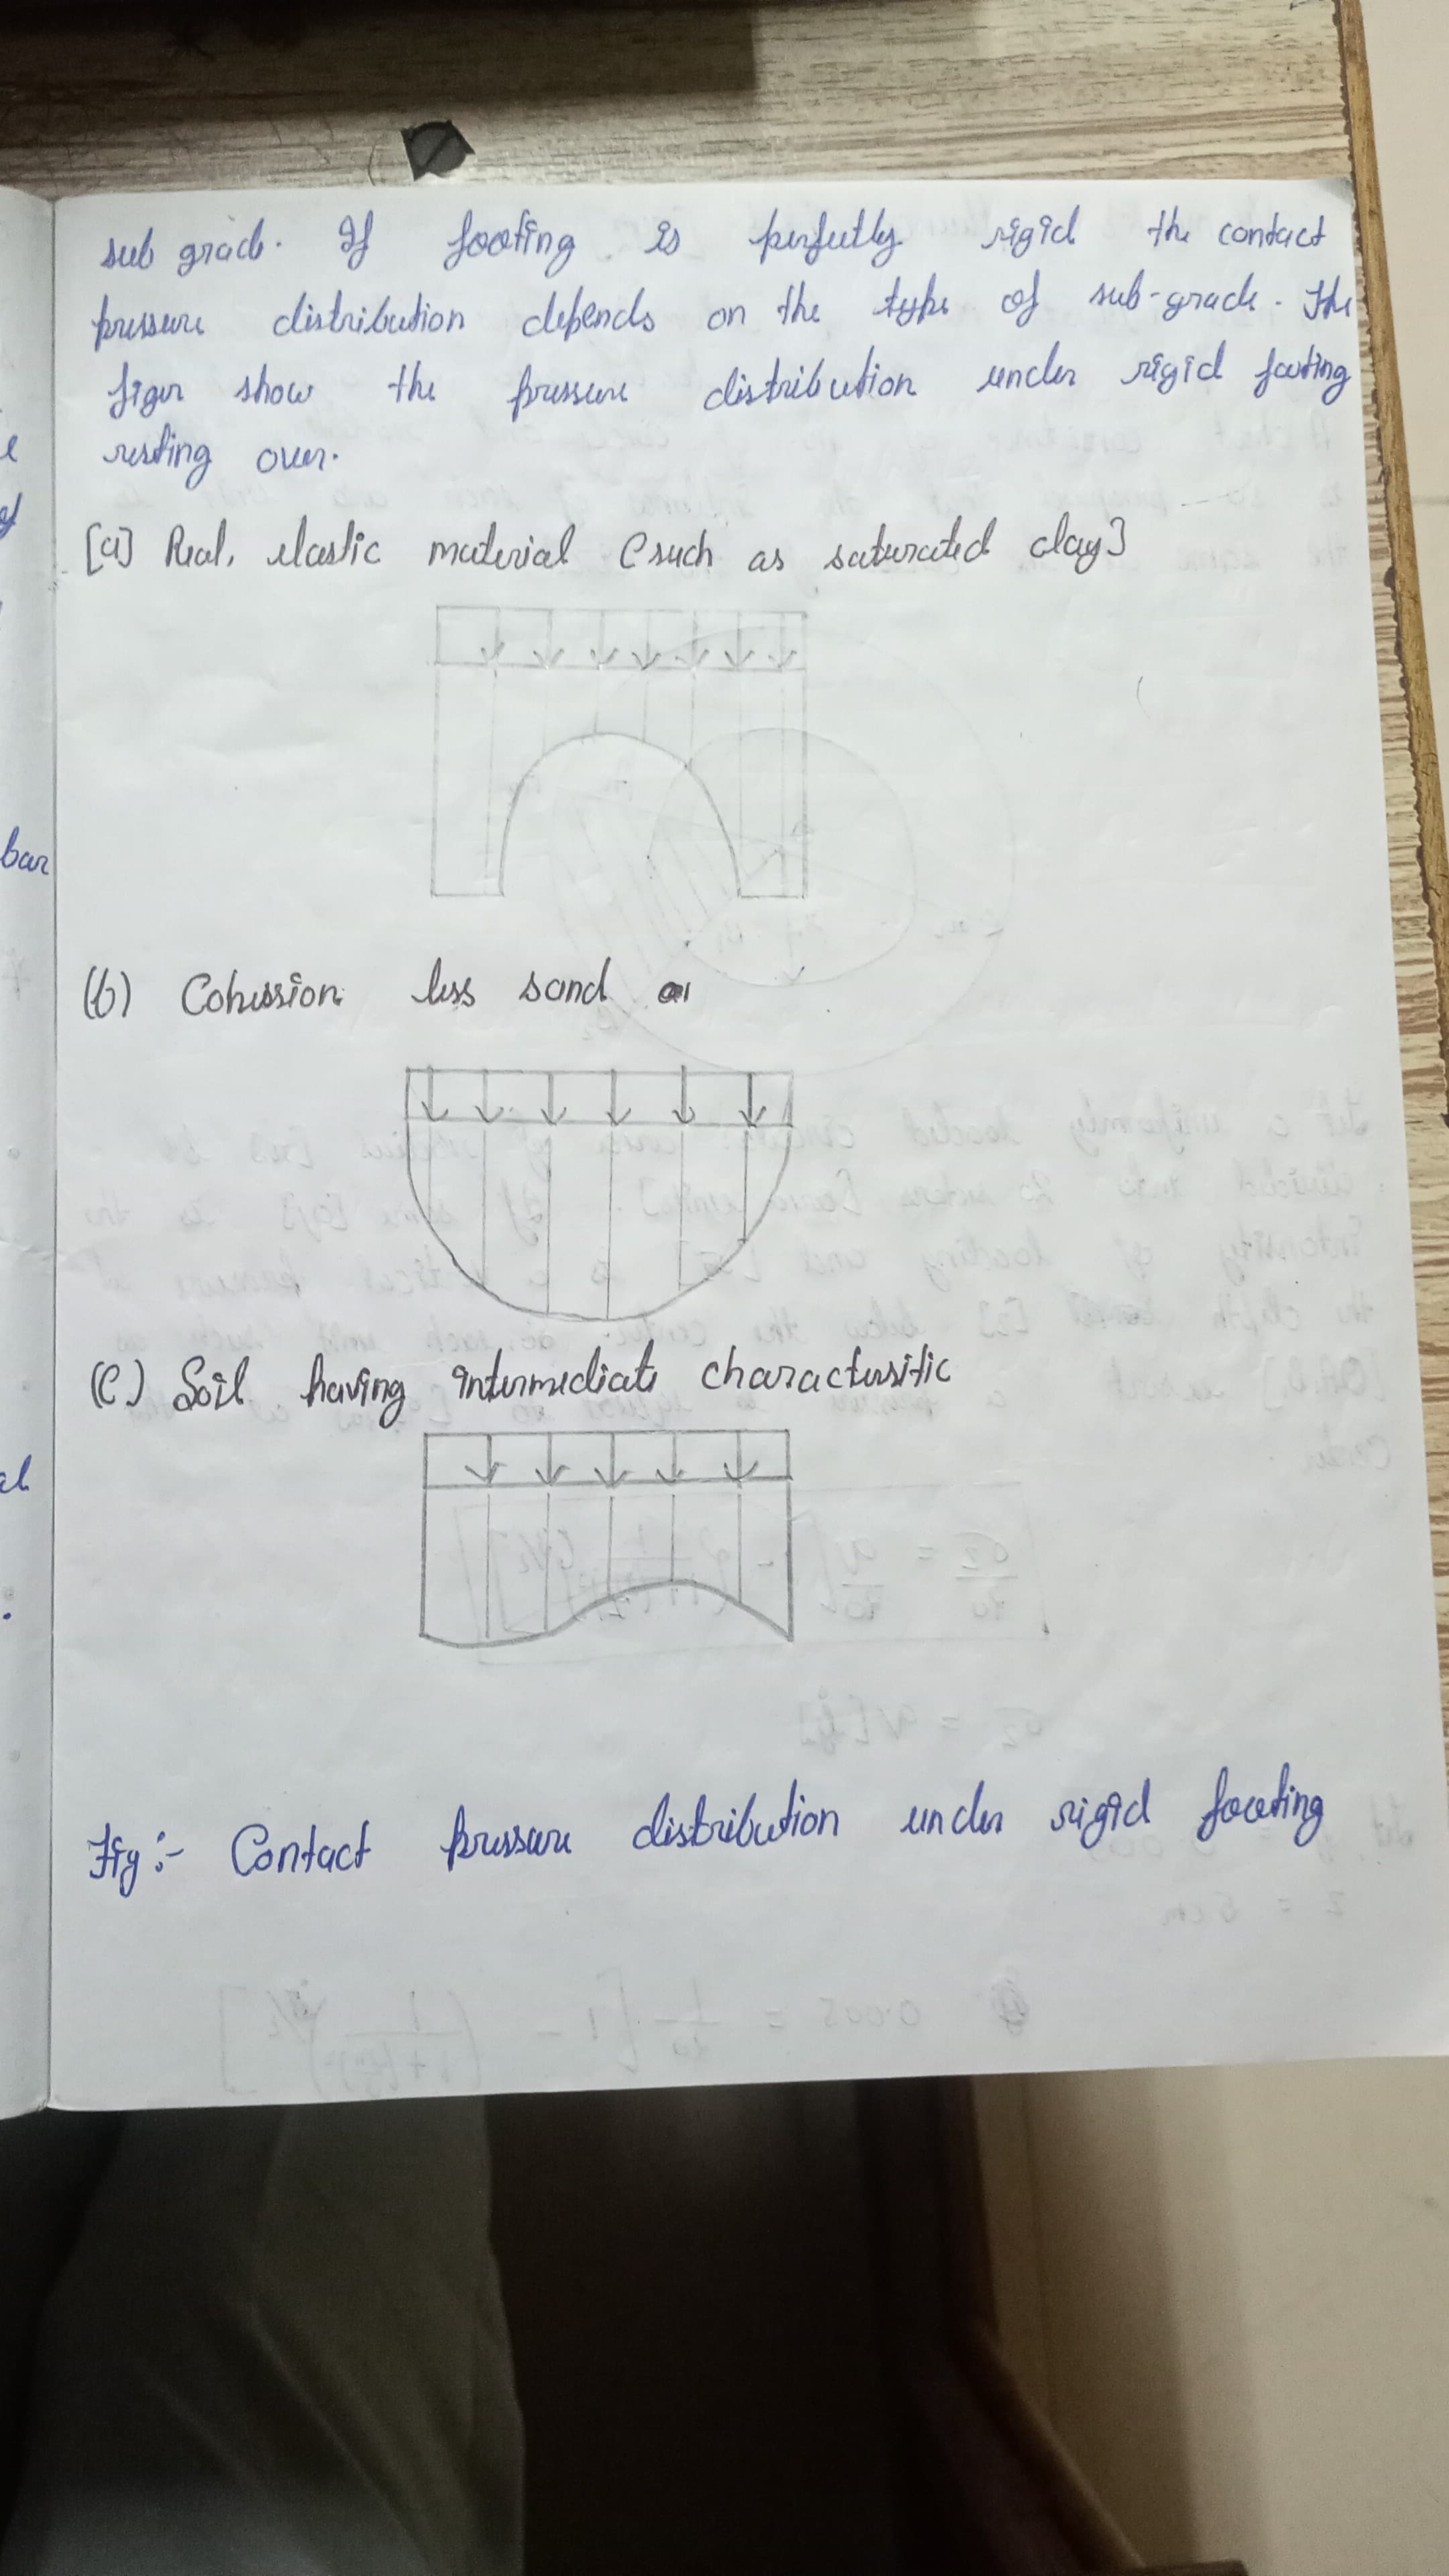 sub grade. If footing is perfectly rigid the contact
pressure distribution depends on the type of sub-grade. The
figer show the pressure distribution under rigid footing
resting over.
[a] Real, elastic material (such as saturated clay]
(b) Cohession less sand
(C.) Soil having intermediate charactersitic
Fig:- Contact pressure distribution under rigid footing
bar